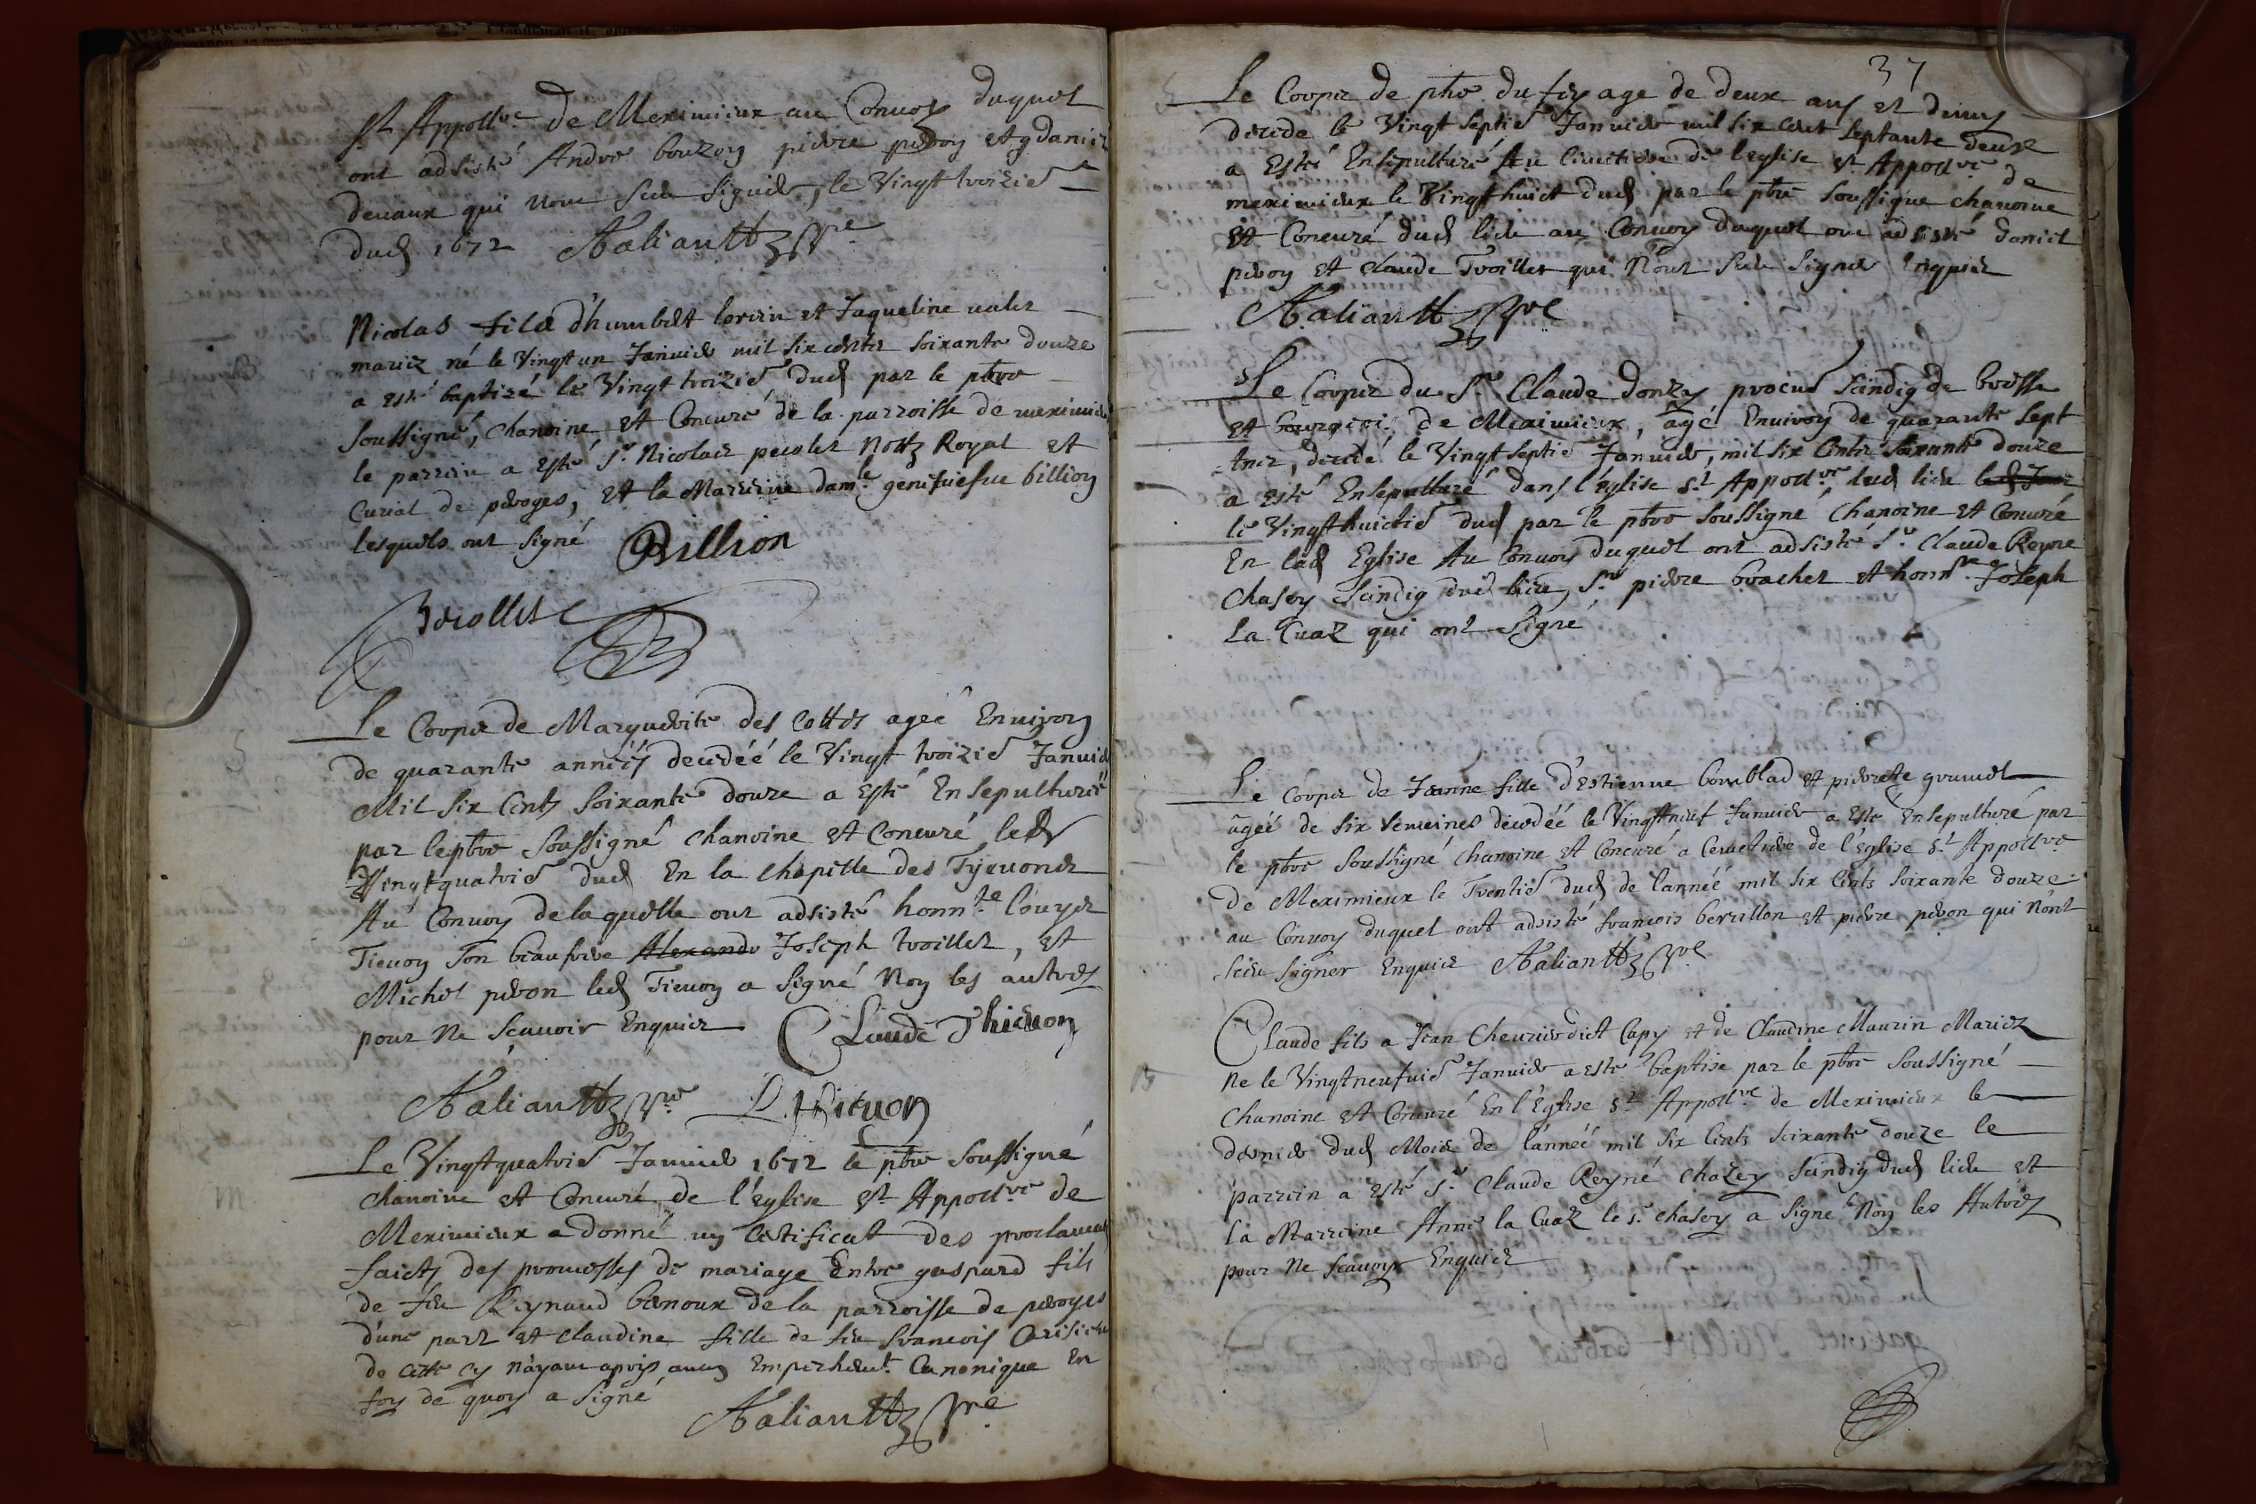 St Appollre de Meximieux au Convoy duquel
ont adsisté Andre bouzon pierre peron Et daniel
devaux qui nont sceu signer, le Vingt troizie
dud 1672 Aaliantt pre
Nicolas fils d'humbert lorrin et Jaqueline valer
mariez né le Vingt un Janvier mil six centz soixante douze
a esté baptizé le Vingt troizie dud par le pbre
soussigné, chanoine et Concuré de la parroisse de meximieux
le parrin a Esté Sr Nicolas perolet Nottz Royal et
Curial de peroges, et la Marrine damle genefiefue billion
lesquels ont signé Billion
Perollet
Le Corps de Marguerite des Cottes agée Environ
de quarante années decedée le Vingt troizie Janvier
Mil six Centz soixante douze a Esté Ensepulturée
par le pbre soussigné chanoine et Concuré led
Vingtquatrie dud En la chapelle des Tieuons
Au Convoy de laquelle ont adsisté honnble Louys
Tieuon son beaufrere Alexandr Joseph troillet, et
Michel peron led Tieuon a signé Non les autres
pour Ne sçauoir Enquis Claude Thieuon
Aaliantt pre L Thieuon
Le Vingtquatrie Janvier 1672 le pbre soussigné
chanoine et Concuré de l'Eglise St Appollre de
Meximieux a donné un Certificat des proclames
faicts des promesses de mariage Entre gaspard fils
de feu Reynaud benoux de la parroisse de peroges
d'une part et Claudine fille de feu francois
de cette cy n'ayant apris aucun Empeschemt Canonique En
foy de quoy a signé
Aaliantt pre
37
Le Corps de phe du fey agé de deux ans et demy
decedé le Vingt septie Janvier mil six cent septante deux
a Esté Ensepulturé Au Cimetiere de l'eglise St Appollre de
meximieux le Vingt huict dud par le pbre soussigné chanoine
Et Concuré dud lieu au Convoy duquel ont adsisté daniel
peron et Claude Troillet qui N'ont sceu signer Enquis
Aaliantt pre
Le Corps du Sr Claude donzey procur scindiq de bresse
et bourgeois de Meximieux, âgé Environ de quarante sept
Ans, decedé le Vingt septie Janvier, mil six Centz soixante douze
a esté Ensepulturé dans l'église St Appollre dud lieu led Jour
le Vingthuictie dud par le pbre soussigné chanoine et Concuré
En lad Eglise Au Convoy duquel ont adsisté Sr Claude Reyne
Chasey scindiq dud lieu, Sr pierre brachet et honnble Joseph
La Cuaz qui ont signé
Le Corps de Jeanne fille d'Estienne bomblad et pierrete grumel
âgée de six semeines decedée le Vingtneuf Janvier a Esté Ensepulturé par
le pbre soussigné chanoine et Concuré a Cemetiere de l'église St Appollre
de Meximieux le Trentie dud de l'année mil six Centz soixante douze
au Convoy duquel ont adsisté francois berrillon et pierre peron qui n'ont
sceu signer Enquis Aaliantt pre
Claude fils a Jean Cheurier dict Capy et de Claudine Maurin Mariez
Ne le Vingtneufuie Janvier a esté baptisé par le pbre soussigné
Chanoine et Concuré En l'Eglise St Appollre de Meximieux le
dernier dud Mois de l'année mil six Centz soixante douze le
parrein a Esté Sr Claude Reyné Chazey scindiq dud lieu et
la Marreine Anne la Cuaz le sr chasey a signé Non les Autres
pour Ne sçauoyr Enquis